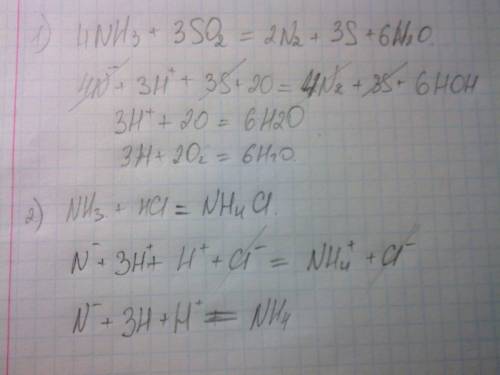 1) 4NH3 + 3SO2 = 2N2 + 3S + 6H2O.
4N⁻ + 3H⁺ + 3S + 2O = 4N2 + 3S + 6HOH
3H⁺ + 2O = 6H2O
3H + 2O2 = 6H2O.
2) NH3 + HCl = NH4Cl.
N⁻ + 3H⁺ + H⁺ + Cl⁻ = NH4⁺ + Cl⁻
N⁻ + 3H + H⁺ = NH4